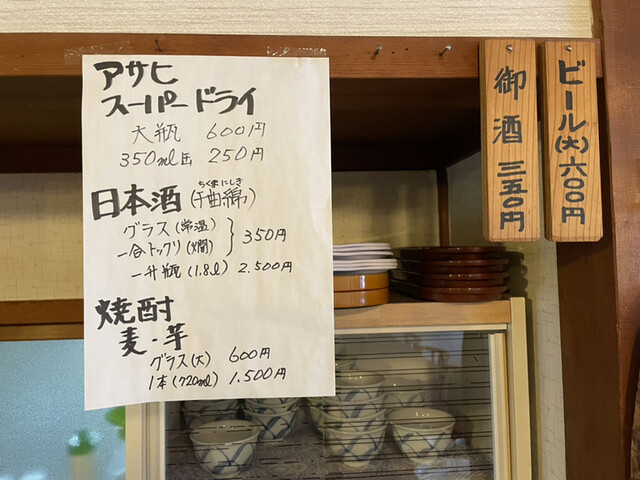 アサヒ
スーパードライ
大瓶 600円
350ml缶 250円
日本酒(千曲錦)
ちくまにしき
グラス(常温)
一合トックリ(燗)
350円
一升瓶(1.8ℓ) 2.500円
焼酎
麦・芋
グラス(大) 600円
1本(720ml) 1.500円
御酒 三五〇円
ビール(大) 六〇〇円